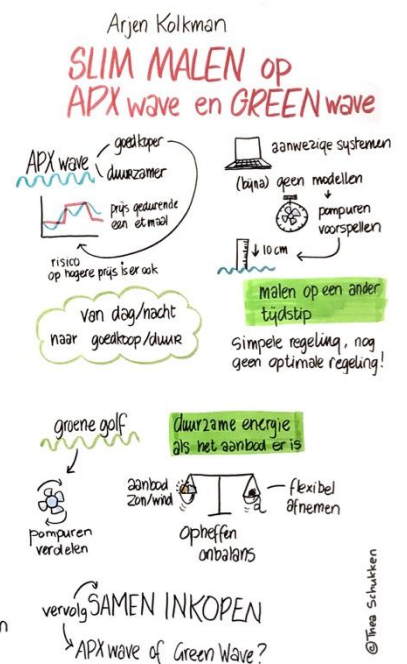 Arjen Kolkman
SLIM MALEN op
APX wave en GREEN wave
APX wave
goedkoper
duurzamer
prijs gedurende
een etmaal
risico
op hogere prijs is er ook
van dag/nacht
naar goedkoop/duur
aanwezige systemen
(bijna) geen modellen
pompuren
voorspellen
10 cm
malen op een ander
tijdstip
Simpele regeling, nog
geen optimale regeling!
groene golf
pompuren
verdelen
duurzame energie
als het aanbod er is
aanbod
zon/wind
flexibel
afnemen
Opheffen
onbalans
vervolg SAMEN INKOPEN
APX wave of Green Wave?
©Thea Schukken